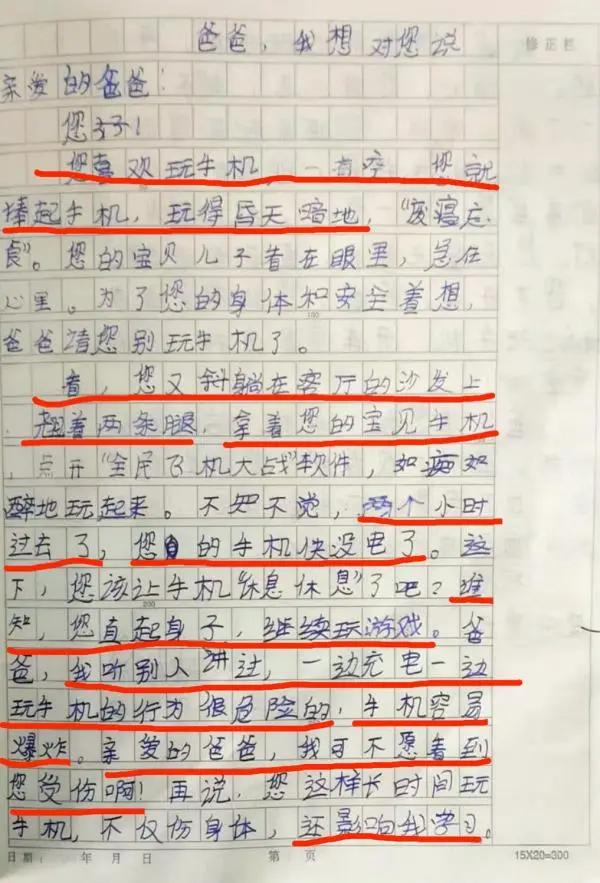 爸爸，我想对您说
修正栏
亲爱的爸爸：
您好！
您喜欢玩手机，一有空，您就
捧起手机，玩得昏天暗地，“废寝忘
食”。您的宝贝儿子看在眼里，急在
心里。为了您的身体和安全着想，
100
爸爸请您别玩手机了。
看，您又斜躺在客厅的沙发上
，翘着两条腿，拿着您的宝贝手机
，点开“全民飞机大战”软件，如痴如
醉地玩起来。不知不觉，两个小时
过去了，您的手机快没电了。这
下，您该让手机“休息休息”了吧？谁
200
知，您直起身子，继续玩游戏。爸
爸，我听别人讲过，一边充电一边
玩手机的行为很危险的，手机容易
爆炸。亲爱的爸爸，我可不愿看到
您受伤啊！再说，您这样长时间玩
手机，不仅伤身体，还影响我学习。
日期： 年 月 日 第 页 15X20=300